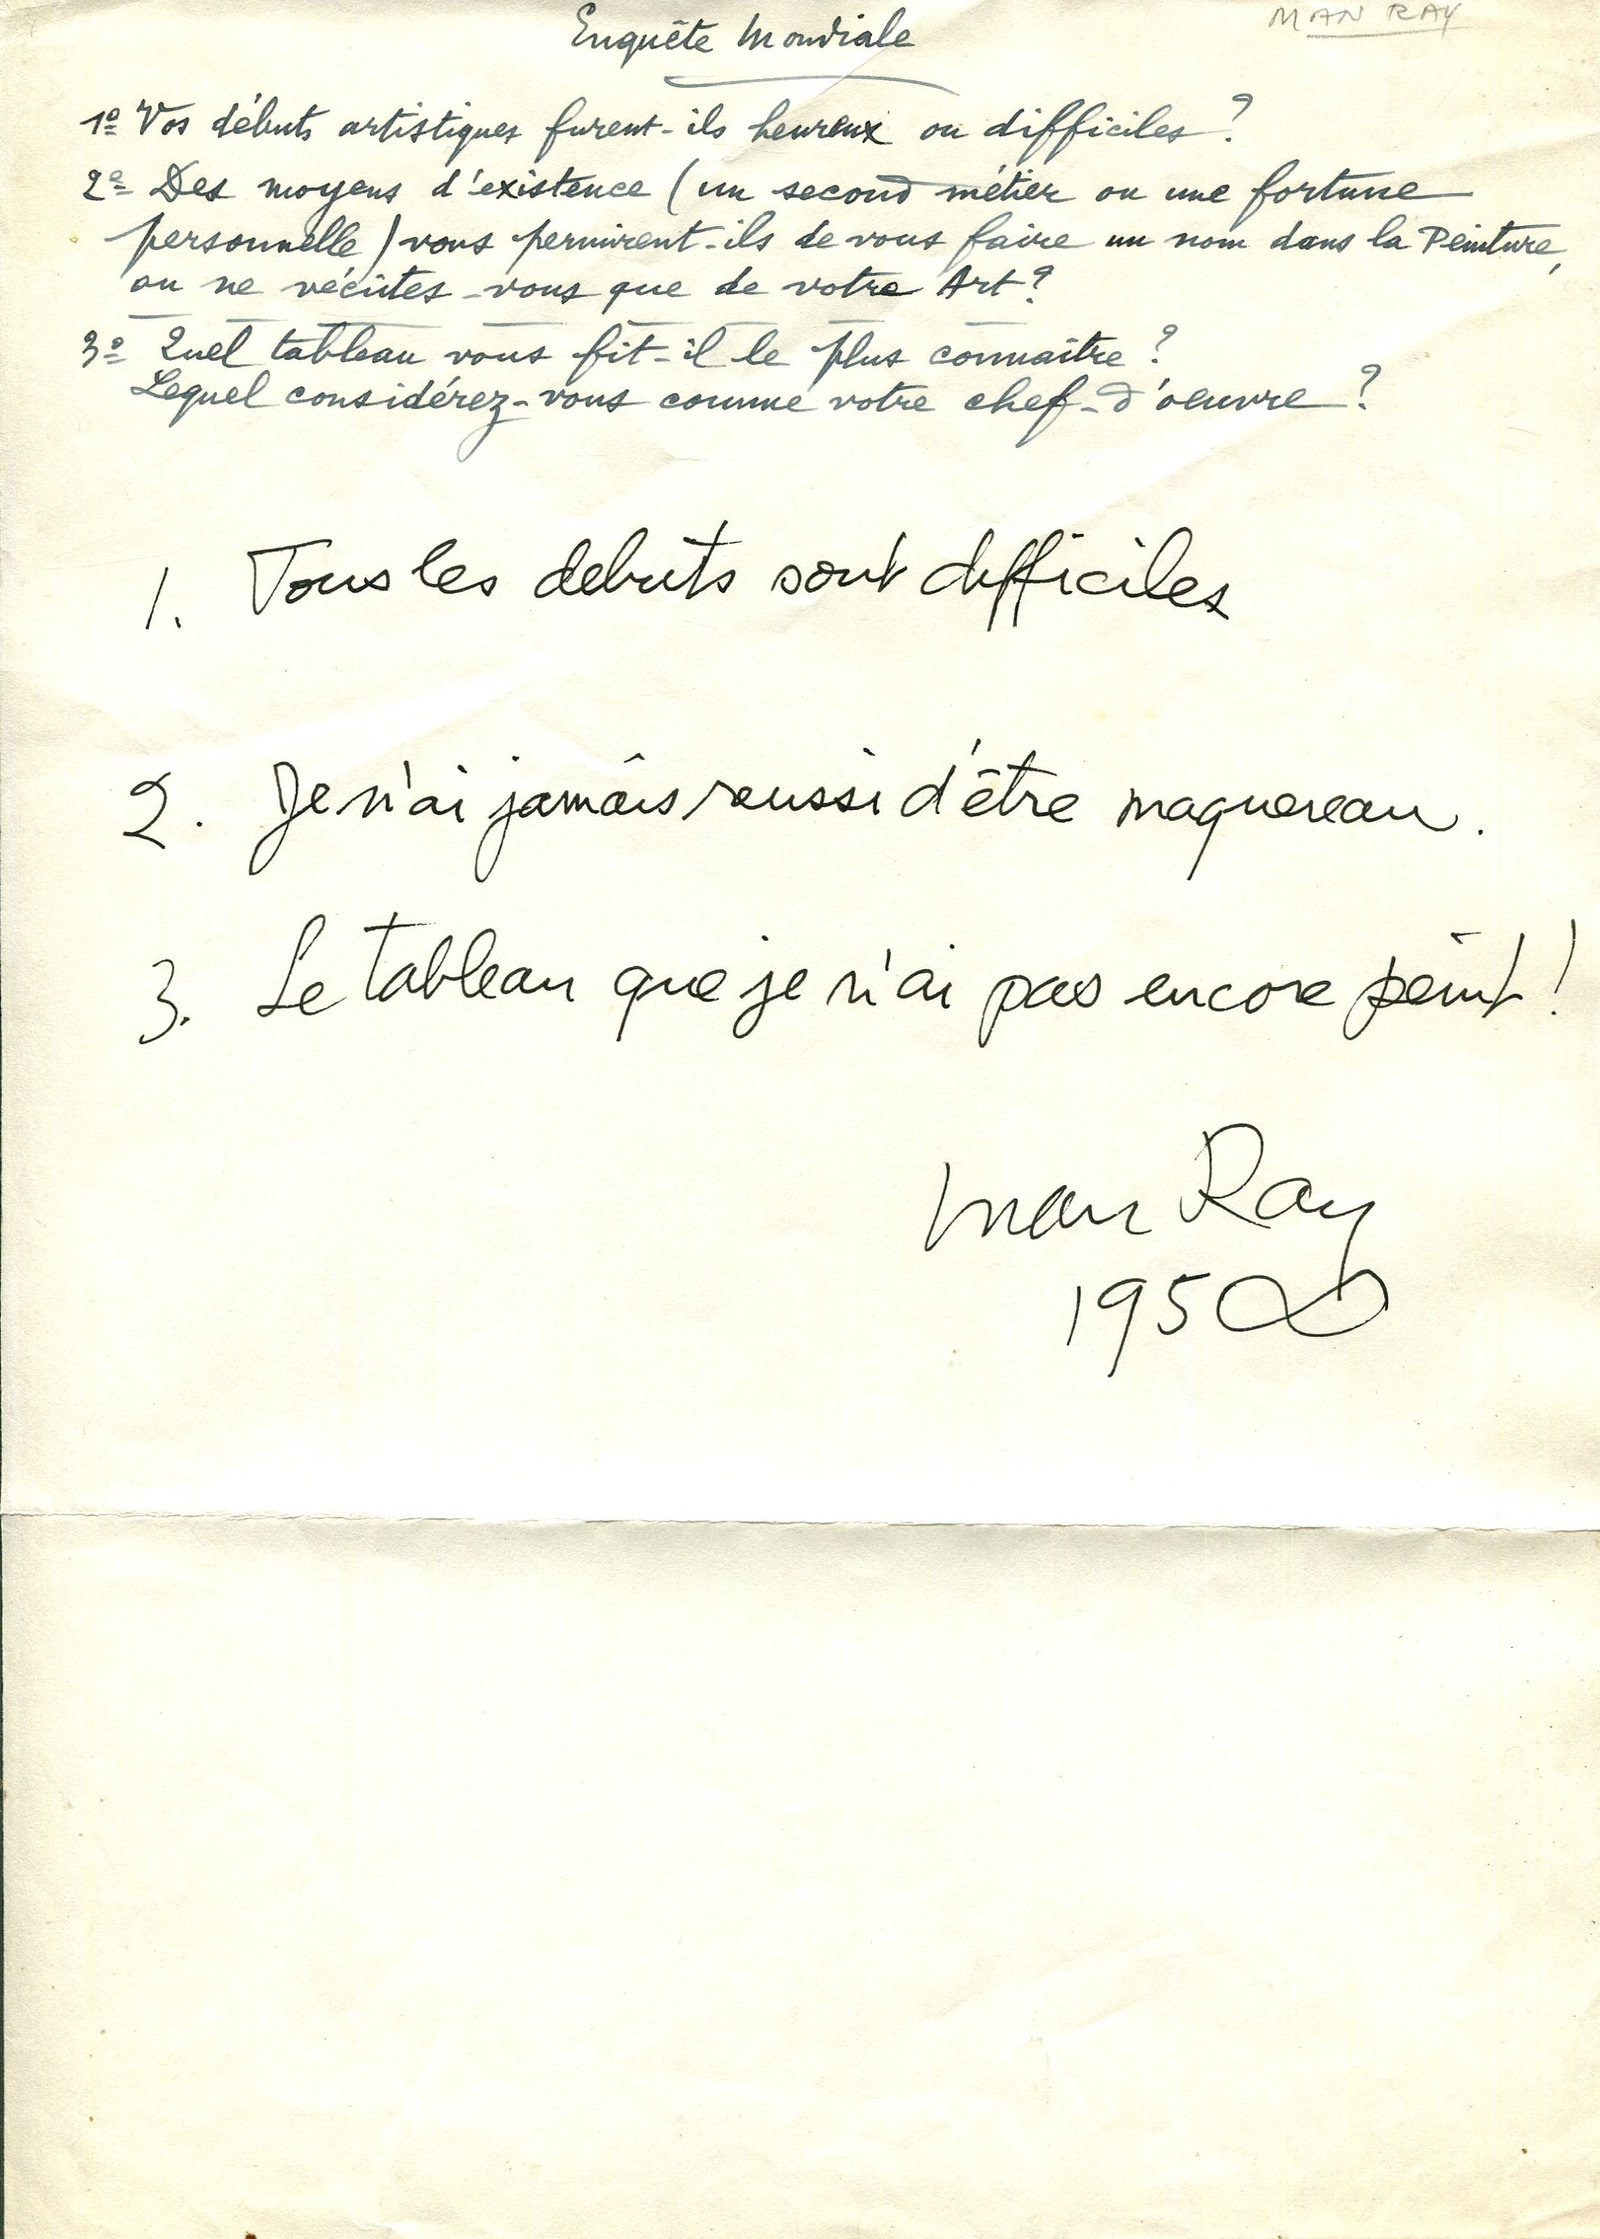 MAN RAY
Enquête Mondiale
1º Vos débuts artistiques furent-ils heureux ou difficiles ?
2º Des moyens d'existence (un second métier ou une fortune
personnelle) vous permirent-ils de vous faire un nom dans la Peinture,
ou ne vécûtes-vous que de votre Art ?
3º Quel tableau vous fit-il le plus connaître ?
Lequel considérez-vous comme votre chef-d'oeuvre ?
1. Tous les debuts sont difficiles
2. Je n'ai jamais reussi d'être maquereau.
3. Le tableau que je n'ai pas encore peint !
Man Ray